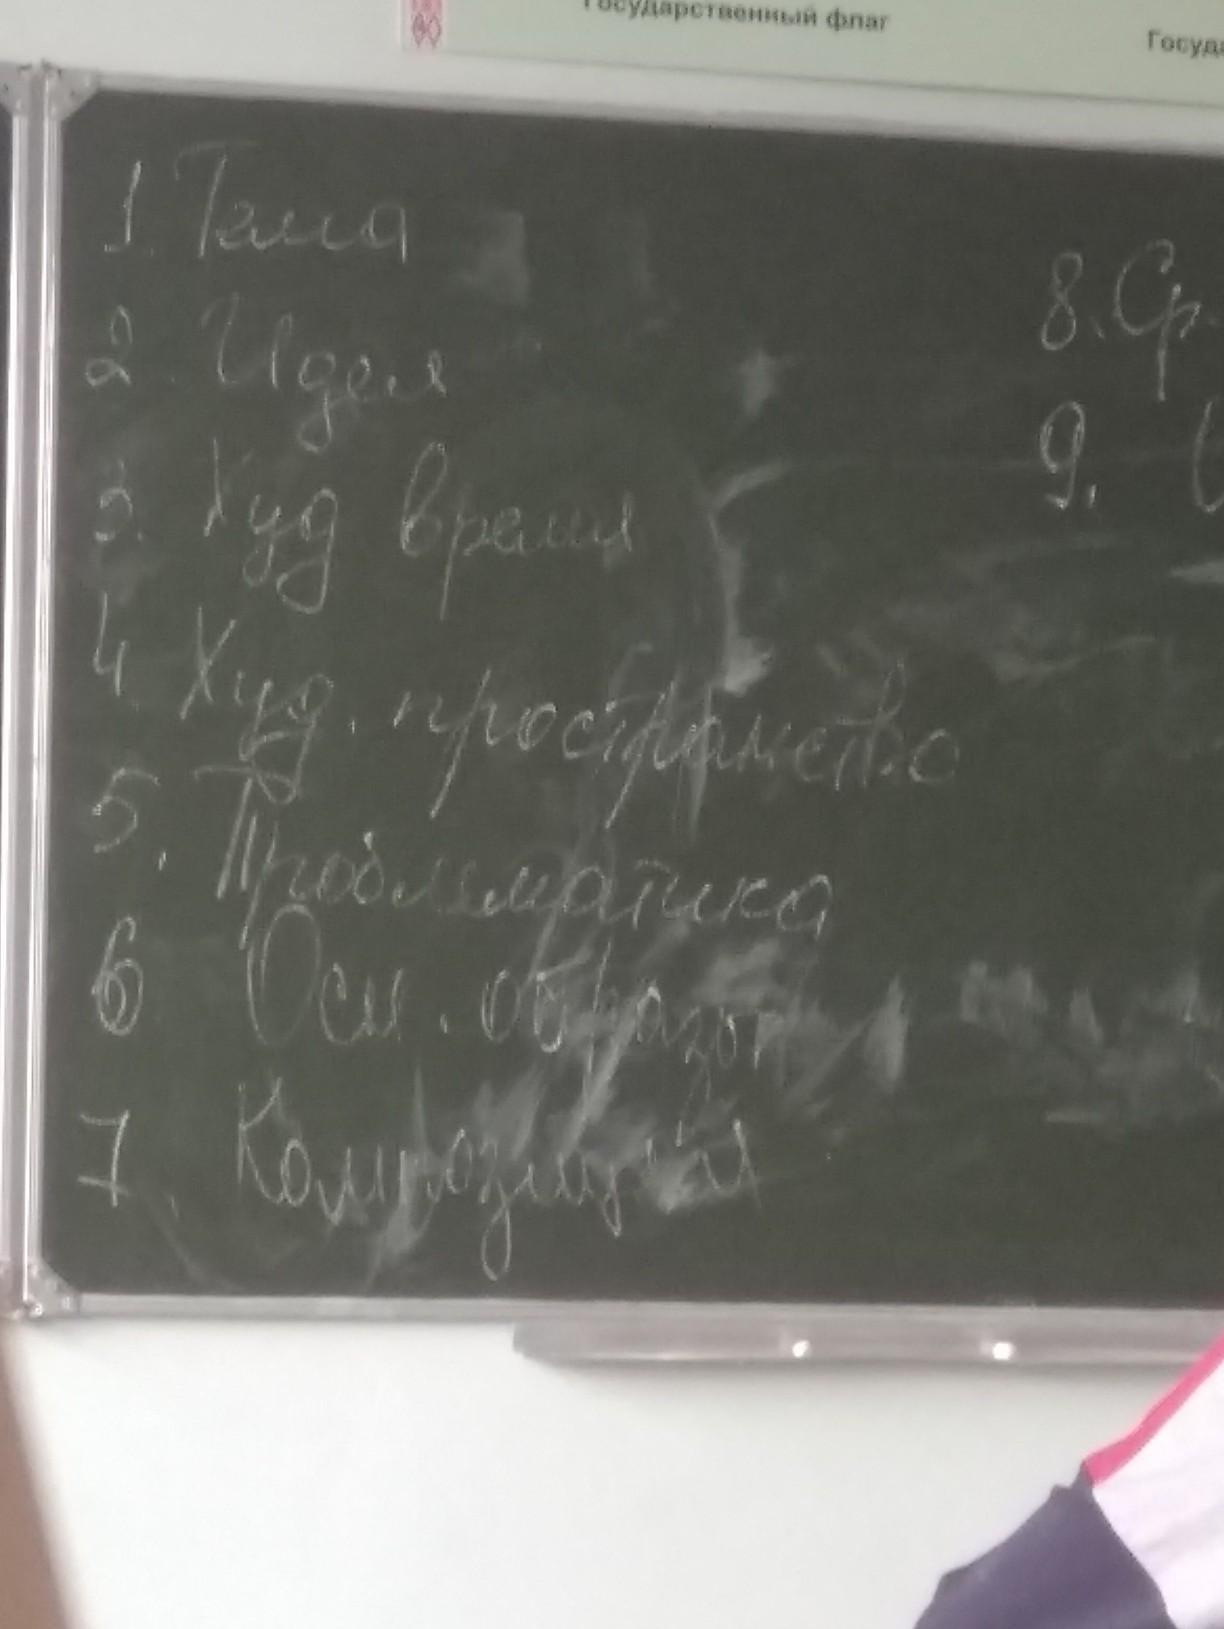 Государственный флаг
1. Тема
2. Идея
3. Худ время
4 Худ. пространство
5. Проблематика
6 Осн. образы
7. Композиция
8. Ср
9.